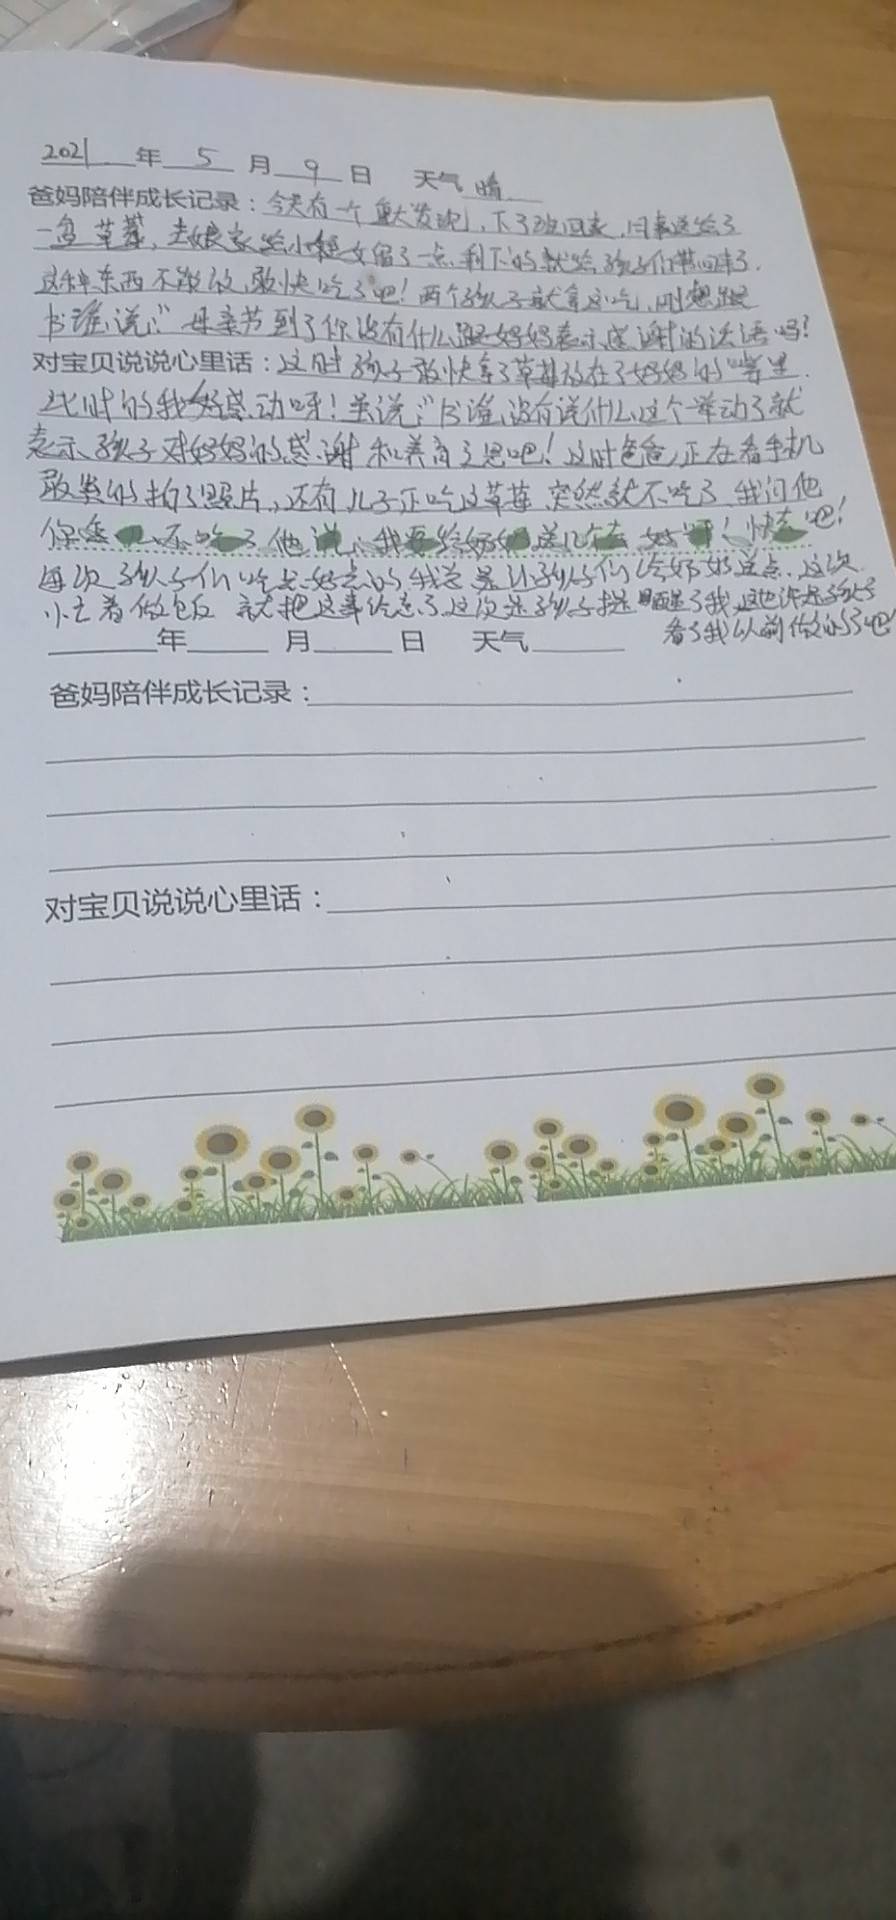 2021年5月9日 天气 晴
爸妈陪伴成长记录：今天有一个重大发现，下了班回来，同事送给了
一盒草莓，去娘家给小侄女留了一点，剩下的就给孩子们带回来了.
这种东西不能放，敢快吃了吧！两个孩子就拿这吃，刚想跟
书谊说：“母亲节到了你没有什么跟妈妈表示感谢的话语吗？
对宝贝说说心里话：这时孩子敢快拿了草莓放在了妈妈的嘴里.
此时的我好感动呀！虽说：“书谊没有说什么，这个举动了就
表示孩子对妈妈的感谢和养育之恩吧！这时爸爸正在看手机
敢紧的拍了照片，还有儿子正吃这草莓，突然就不吃了，我问他
你怎么不吃了他说：我要给妈妈送几个去 好呀！快去吧！
每次孩子们吃点好点的我总是让孩子们给奶奶送点，这次
小忙着做饭 就把这事给忘了，这次是孩子提醒了我，这也许是孩子
看了我以前做的了吧
年 月 日 天气
爸妈陪伴成长记录：
对宝贝说说心里话：